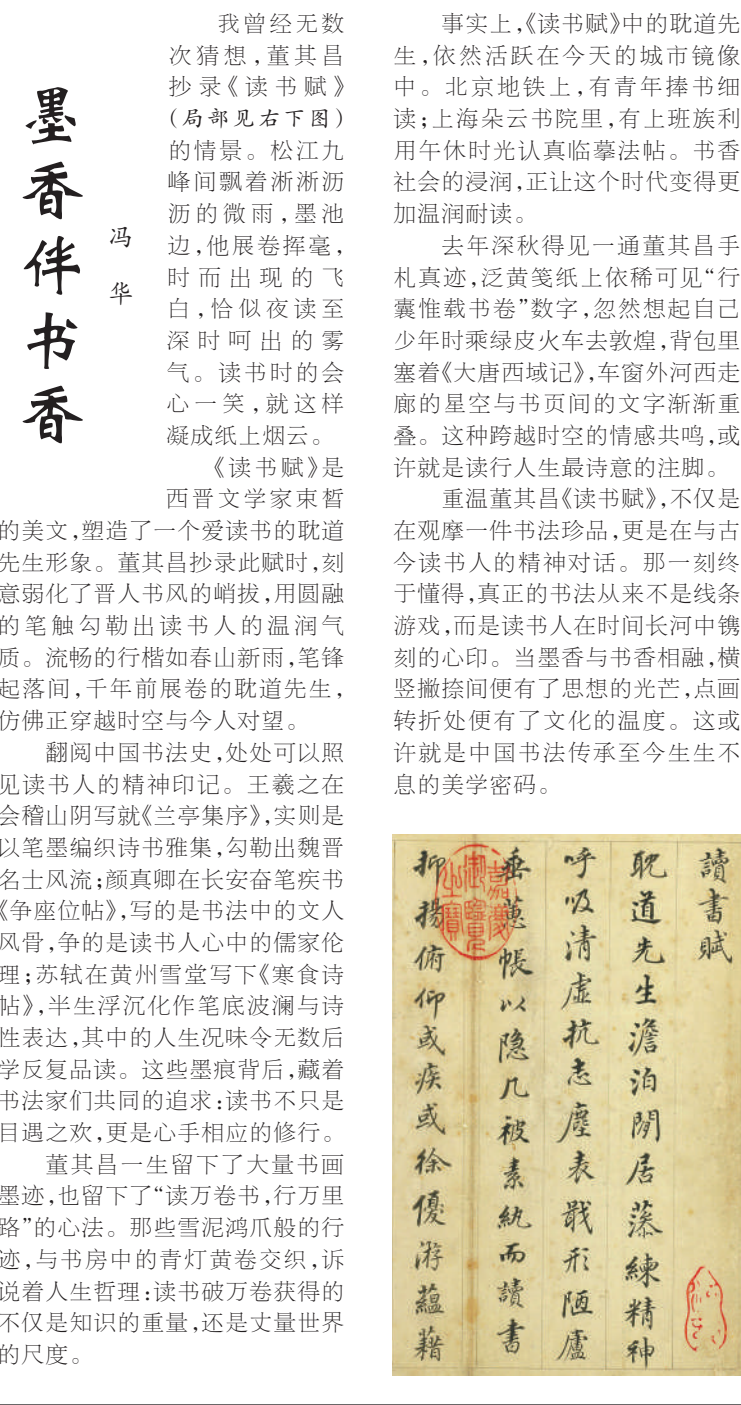 墨香伴书香
冯华
我曾经无数
次猜想,董其昌
抄录《读书赋》
(局部见右下图)
的情景。松江九
峰间飘着淅淅沥
沥的微雨,墨池
边,他展卷挥毫,
时而出现的飞
白,恰似夜读至
深时呵出的雾
气。读书时的会
心一笑,就这样
凝成纸上烟云。
《读书赋》是
西晋文学家束皙
的美文,塑造了一个爱读书的耽道
先生形象。董其昌抄录此赋时,刻
意弱化了晋人书风的峭拔,用圆融
的笔触勾勒出读书人的温润气
质。流畅的行楷如春山新雨,笔锋
起落间,千年前展卷的耽道先生,
仿佛正穿越时空与今人对望。
翻阅中国书法史,处处可以照
见读书人的精神印记。王羲之在
会稽山阴写就《兰亭集序》,实则是
以笔墨编织诗书雅集,勾勒出魏晋
名士风流;颜真卿在长安奋笔疾书
《争座位帖》,写的是书法中的文人
风骨,争的是读书人心中的儒家伦
理;苏轼在黄州雪堂写下《寒食诗
帖》,半生浮沉化作笔底波澜与诗
性表达,其中的人生况味令无数后
学反复品读。这些墨痕背后,藏着
书法家们共同的追求:读书不只是
目遇之欢,更是心手相应的修行。
董其昌一生留下了大量书画
墨迹,也留下了“读万卷书,行万里
路”的心法。那些雪泥鸿爪般的行
迹,与书房中的青灯黄卷交织,诉
说着人生哲理:读书破万卷获得的
不仅是知识的重量,还是丈量世界
的尺度。
事实上,《读书赋》中的耽道先
生,依然活跃在今天的城市镜像
中。北京地铁上,有青年捧书细
读;上海朵云书院里,有上班族利
用午休时光认真临摹法帖。书香
社会的浸润,正让这个时代变得更
加温润耐读。
去年深秋得见一通董其昌手
札真迹,泛黄笺纸上依稀可见“行
囊惟载书卷”数字,忽然想起自己
少年时乘绿皮火车去敦煌,背包里
塞着《大唐西域记》,车窗外河西走
廊的星空与书页间的文字渐渐重
叠。这种跨越时空的情感共鸣,或
许就是读行人生最诗意的注脚。
重温董其昌《读书赋》,不仅是
在观摩一件书法珍品,更是在与古
今读书人的精神对话。那一刻终
于懂得,真正的书法从来不是线条
游戏,而是读书人在时间长河中镌
刻的心印。当墨香与书香相融,横
竖撇捺间便有了思想的光芒,点画
转折处便有了文化的温度。这或
许就是中国书法传承至今生生不
息的美学密码。
讀書賦
耽道先生澹泊閒居藻練精神
呼吸清虛抗志塵表戢形陋廬
垂蕙帳以隐几被素紈而讀書
抑揚俯仰或疾或徐優游蘊藉
嘉慶御覽之寶